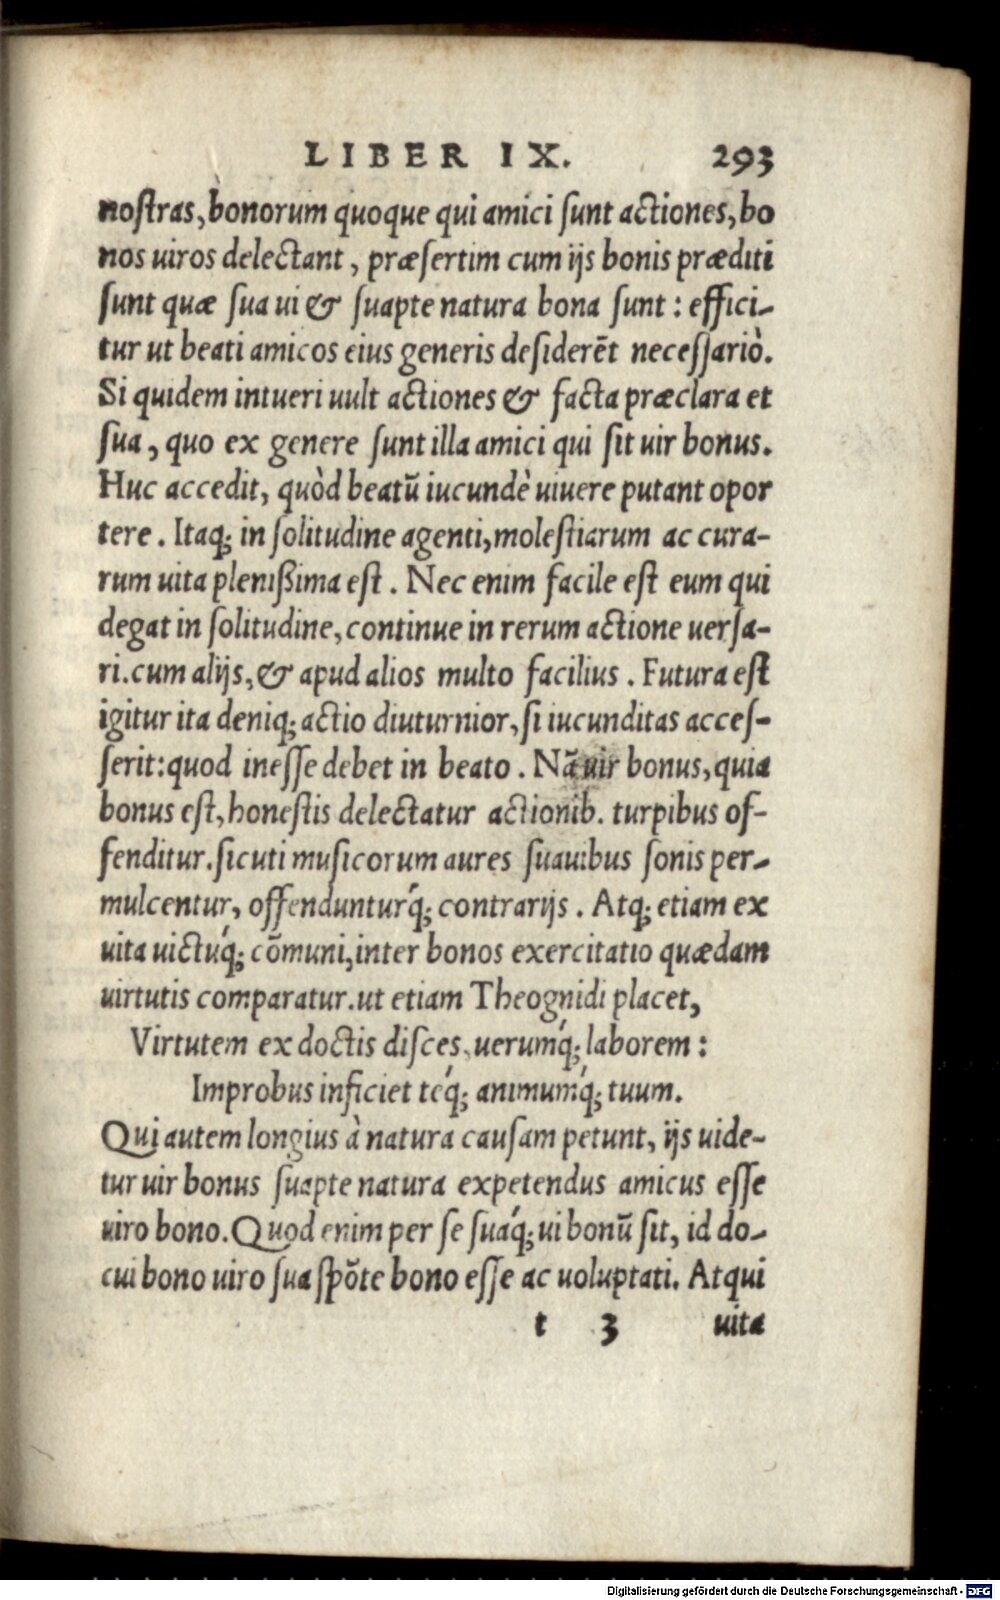 LIBER IX. 293
nostras, bonorum quoque qui amici sunt actiones, bo
nos uiros delectant, præsertim cum ijs bonis præditi
sunt quæ sua ui & suapte natura bona sunt: effici-
tur ut beati amicos eius generis desiderēt necessariò.
Si quidem intueri uult actiones & facta præclara et
sua, quo ex genere sunt illa amici qui sit uir bonus.
Huc accedit, quòd beatū iucundè uiuere putant opor
tere. Itaq; in solitudine agenti, molestiarum ac cura-
rum uita plenißima est. Nec enim facile est eum qui
degat in solitudine, continue in rerum actione uersa-
ri. cum alijs, & apud alios multo facilius. Futura est
igitur ita deniq; actio diuturnior, si iucunditas acces-
serit: quod inesse debet in beato. Nā uir bonus, quia
bonus est, honestis delectatur actionib. turpibus of-
fenditur. sicuti musicorum aures suauibus sonis per-
mulcentur, offenduntúrq; contrarijs. Atq; etiam ex
uita uictúq; cōmuni, inter bonos exercitatio quædam
uirtutis comparatur. ut etiam Theognidi placet,
Virtutem ex doctis disces, uerúmq; laborem:
Improbus inficiet téq; animúmq; tuum.
Qui autem longius à natura causam petunt, ijs uide-
tur uir bonus suapte natura expetendus amicus esse
uiro bono. Quod enim per se suáq; ui bonū sit, id do-
cui bono uiro sua spōte bono esse ac uoluptati. Atqui
t 3 uita
Digitalisierung gefördert durch die Deutsche Forschungsgemeinschaft - DFG